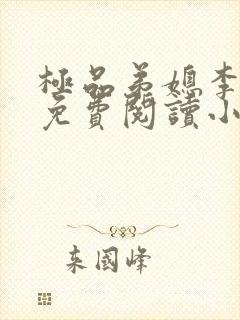 極品弟媳李
免費閱讀小
來國峰